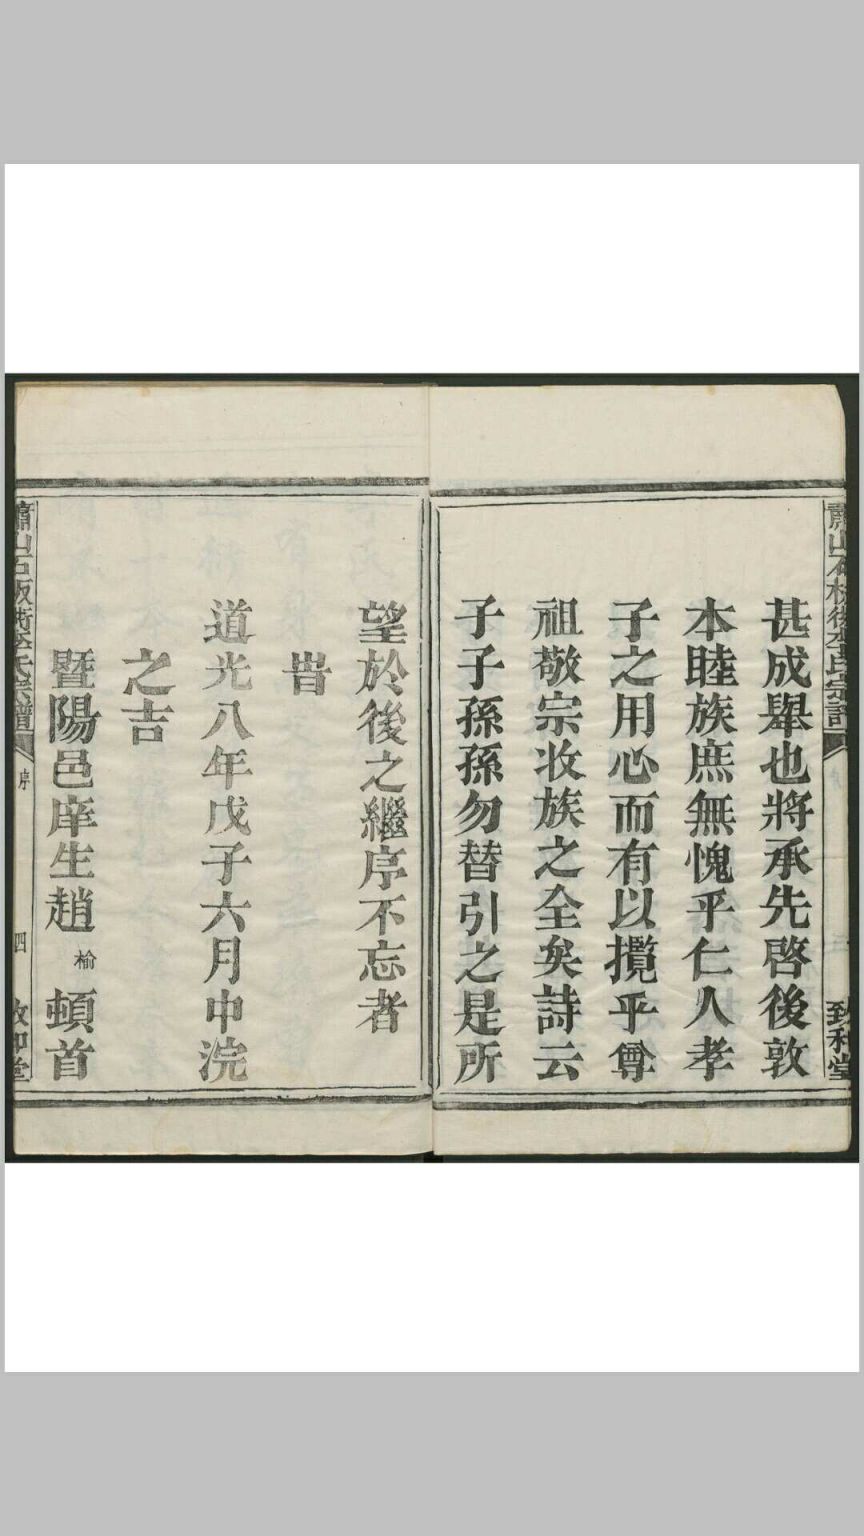 甚成舉也將承先啓後敦
本睦族庶無愧乎仁人孝
子之用心而有以攬乎尊
祖敬宗收族之全矣詩云
子子孫孫勿替引之是所
望於後之繼序不忘者
旹
道光八年戊子六月中浣
之吉
暨陽邑庠生趙榆頓首
蕭山石板衖李氏宗譜
序
四
致和堂